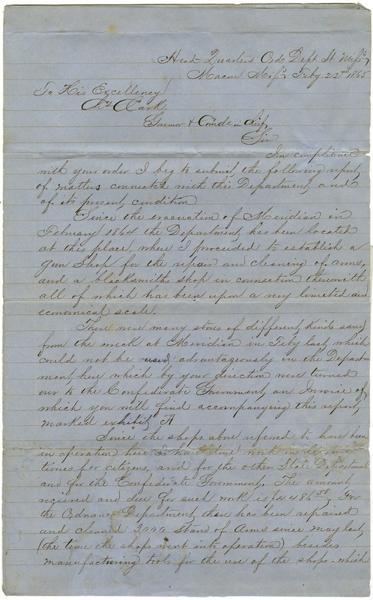 Head Quarters Ord. Dept. St. Miss,
Macon Miss. Feby 22nd 1865
To His Excellency
Clark
Governor & Comdr in Chief
Sir
In compliance
with your order I beg to submit the following report,
of matters connected with this Department, and
of its present condition
Since the evacuation of Meridian in
February 1864 the Department, has been located
at this place, where I proceeded to establish a
gun Shop for the repair and cleaning of Arms,
and a blacksmiths shop in connection therewith
all of which has been upon a very limited and
economical scale.
There were many stores of different kinds saved
from the wreck at Meridian in Feby last, which
could not be used advantageously in the Depart-
ment, here which by your direction were turned
over to the Confederate Government, an Invoice of
which you will find accompanying this report,
marked exhibit A
Since the shops above referred to have been
in operation here
times for citizens, and for the other State Departments
and for the Confederate Government, The amount
received and due for such work is
the Ordnance Department, there has been repaired
and cleaned 3000 Stand of Arms since May last,
(the time the shops went into operation) besides
manufacturing tools for the use of the shops - which